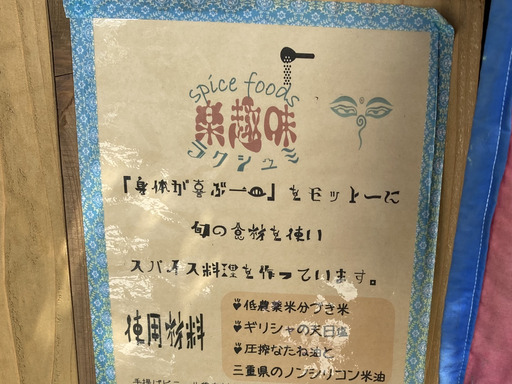 spice foods
楽趣味
ラクシュミ
「身体が喜ぶ一皿」をモットーに
旬の食材を使い
スパイス料理を作っています。
使用材料
低農薬米分づき米
ギリシャの天日塩
圧搾なたね油と
三重県のノンシリコン米油